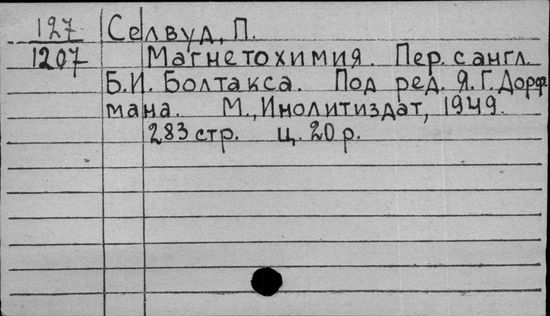 127 Селвуд, П.
1207 Магнетохимия. Пер. с англ.
Б.И. Болтакса. Под ред. Я.Г. Дорф-
мана. М., Инолитиздат, 1949.
283 стр. ц. 20 р.